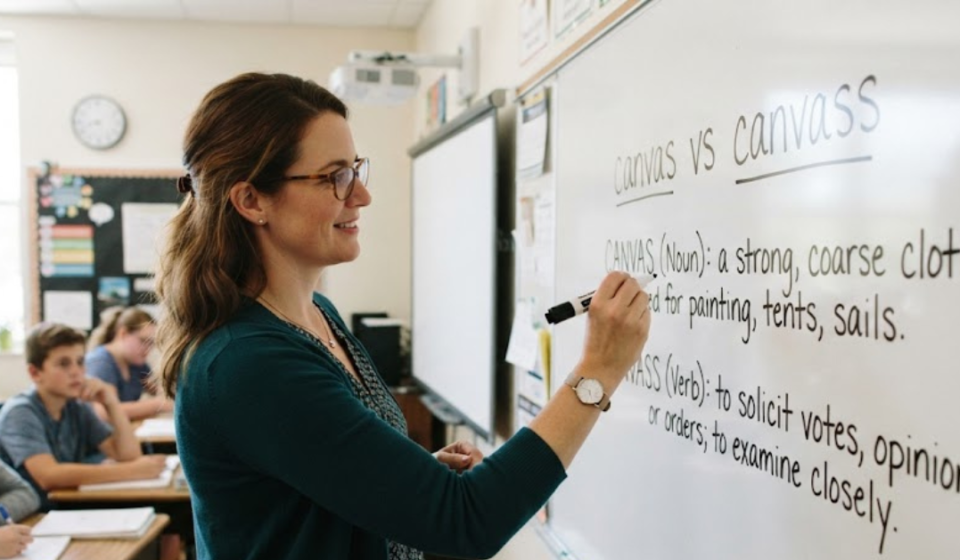 canvas vs canvass
CANVAS (Noun): a strong, coarse clot
for painting, tents, sails.
(Verb): to solicit votes, opinion
or orders; to examine closely.